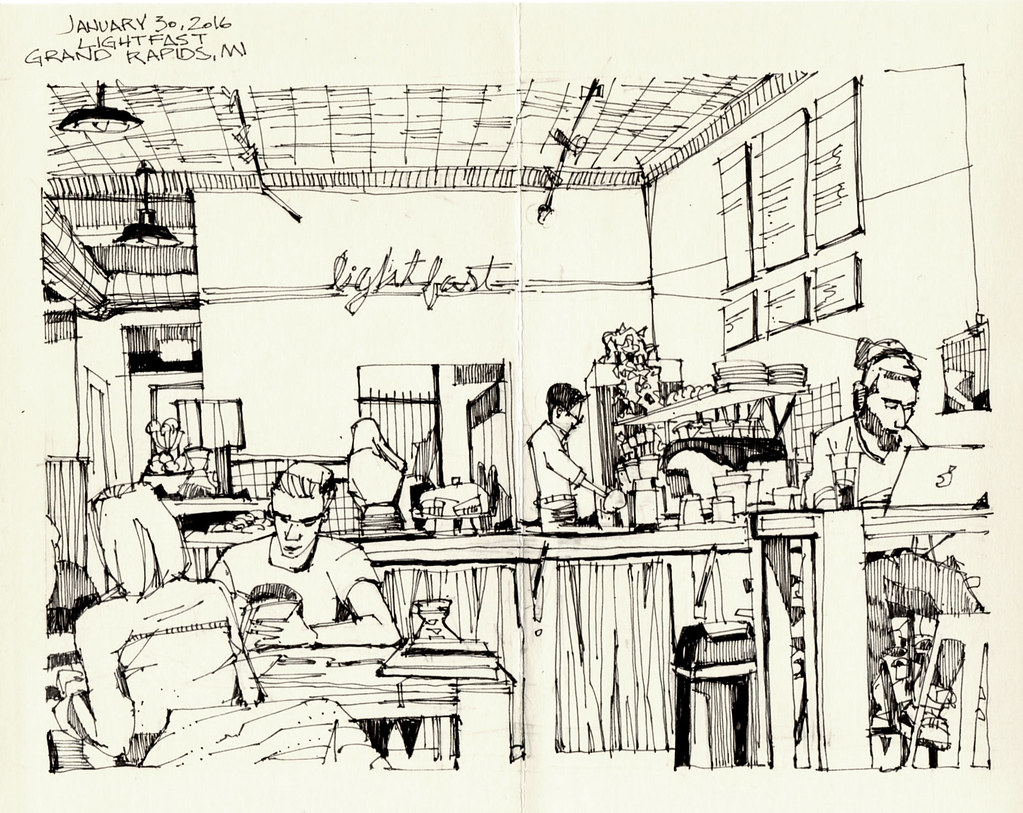 JANUARY 30, 2016
LIGHTFAST
GRAND RAPIDS, MI
lightfast